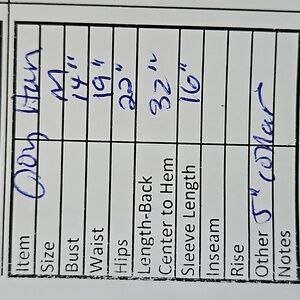 Item
Size M
Bust 14"
Waist 19"
Hips 22"
Length-Back
Center to Hem 32"
Sleeve Length 16"
Inseam
Rise
Other 5" collar
Notes